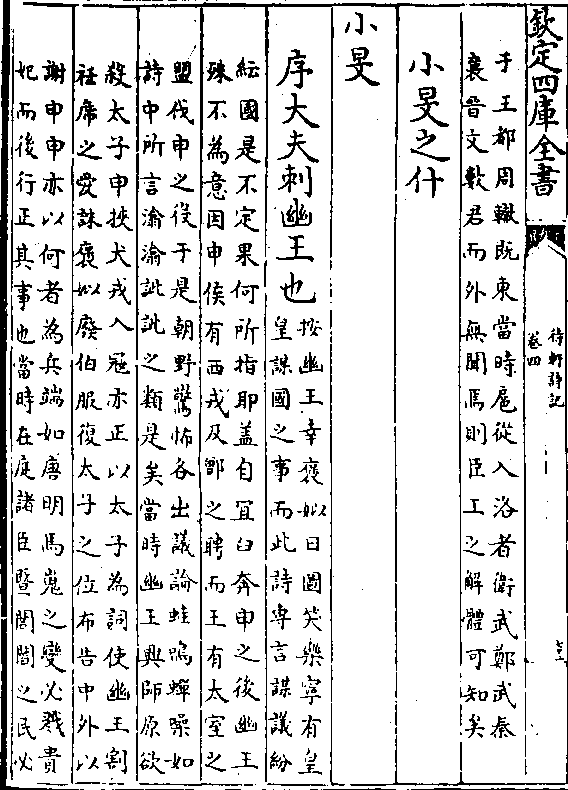 欽定四庫全書
待軒詩記
卷四
于王都周轍既東當時扈從入洛者衛武鄭武秦
襄晉文數君而外無聞焉則臣工之解體可知矣
小旻之什
小旻
序大夫刺幽王也
按幽王幸褒姒日圖笑樂寧有皇
皇謀國之事而此詩専言謀議紛
紜國是不定果何所指耶盖自宜臼奔申之後幽王
殊不為意因申侯有西戎及鄫之聘而王有太室之
盟伐申之役于是朝野驚怖各出議論蛙鳴蟬噪如
詩中所言潝潝訿訿之類是矣當時幽王興師原欲
殺太子申挾犬戎入冦亦正以太子為詞使幽王割
袵席之愛誅褒姒廢伯服復太子之位布告中外以
謝申申亦以何者為兵端如唐明馬嵬之變必戮貴
妃而後行正其事也當時在庭諸臣暨閭閻之民必